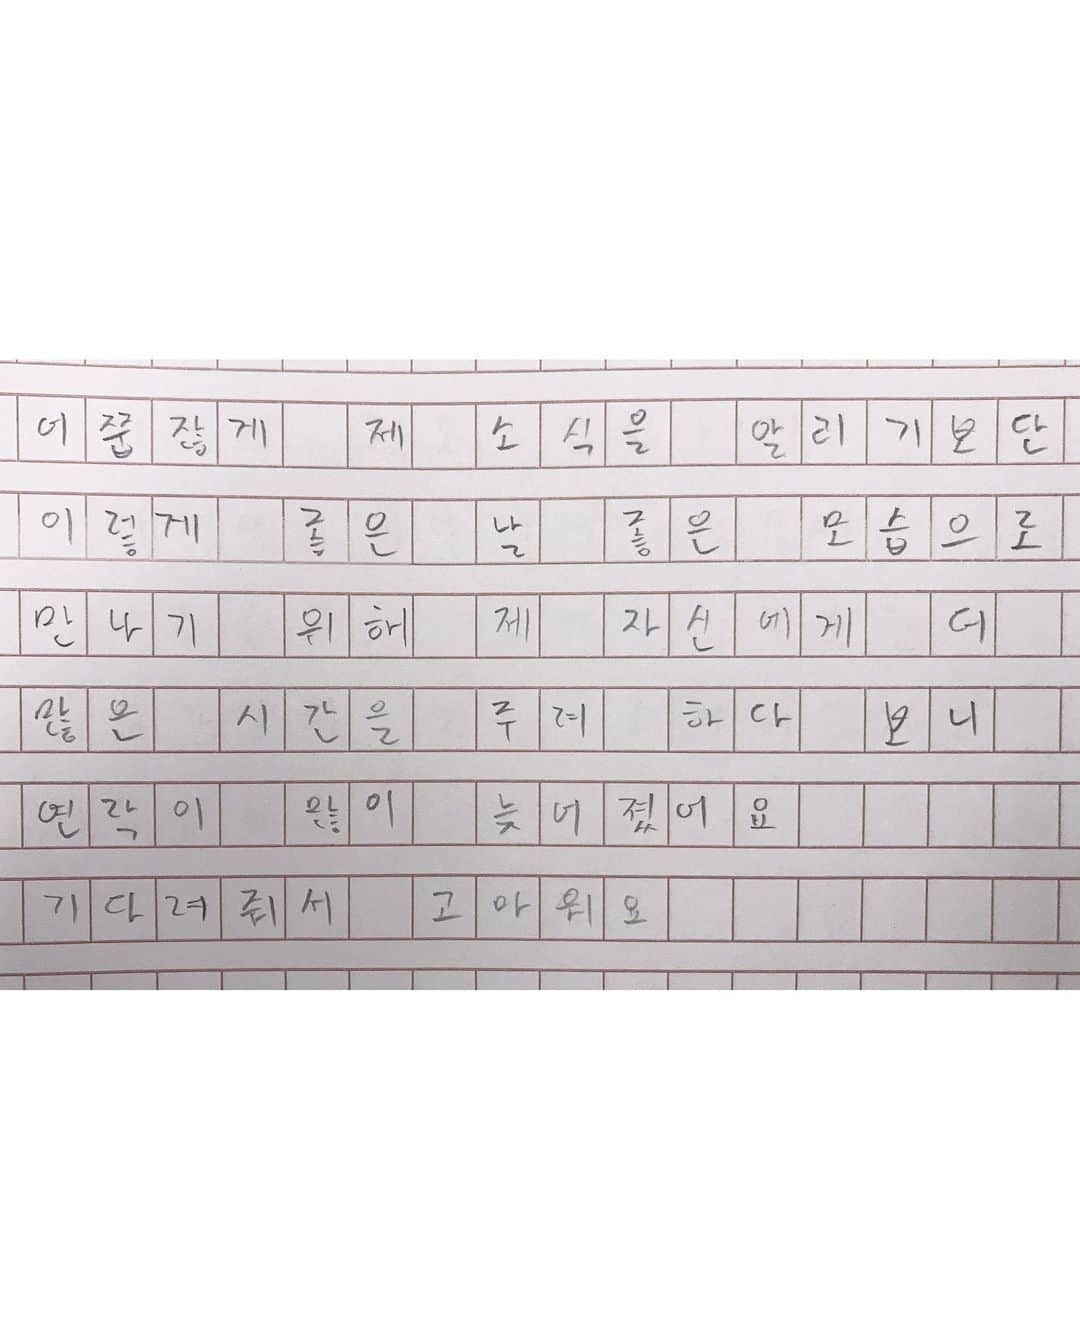 어쭙잖게 제 소식을 알리기보단
이렇게 좋은 날 좋은 모습으로
만나기 위해 제 자신에게 더
많은 시간을 주려 하다 보니
연락이 많이 늦어졌어요
기다려줘서 고마워요